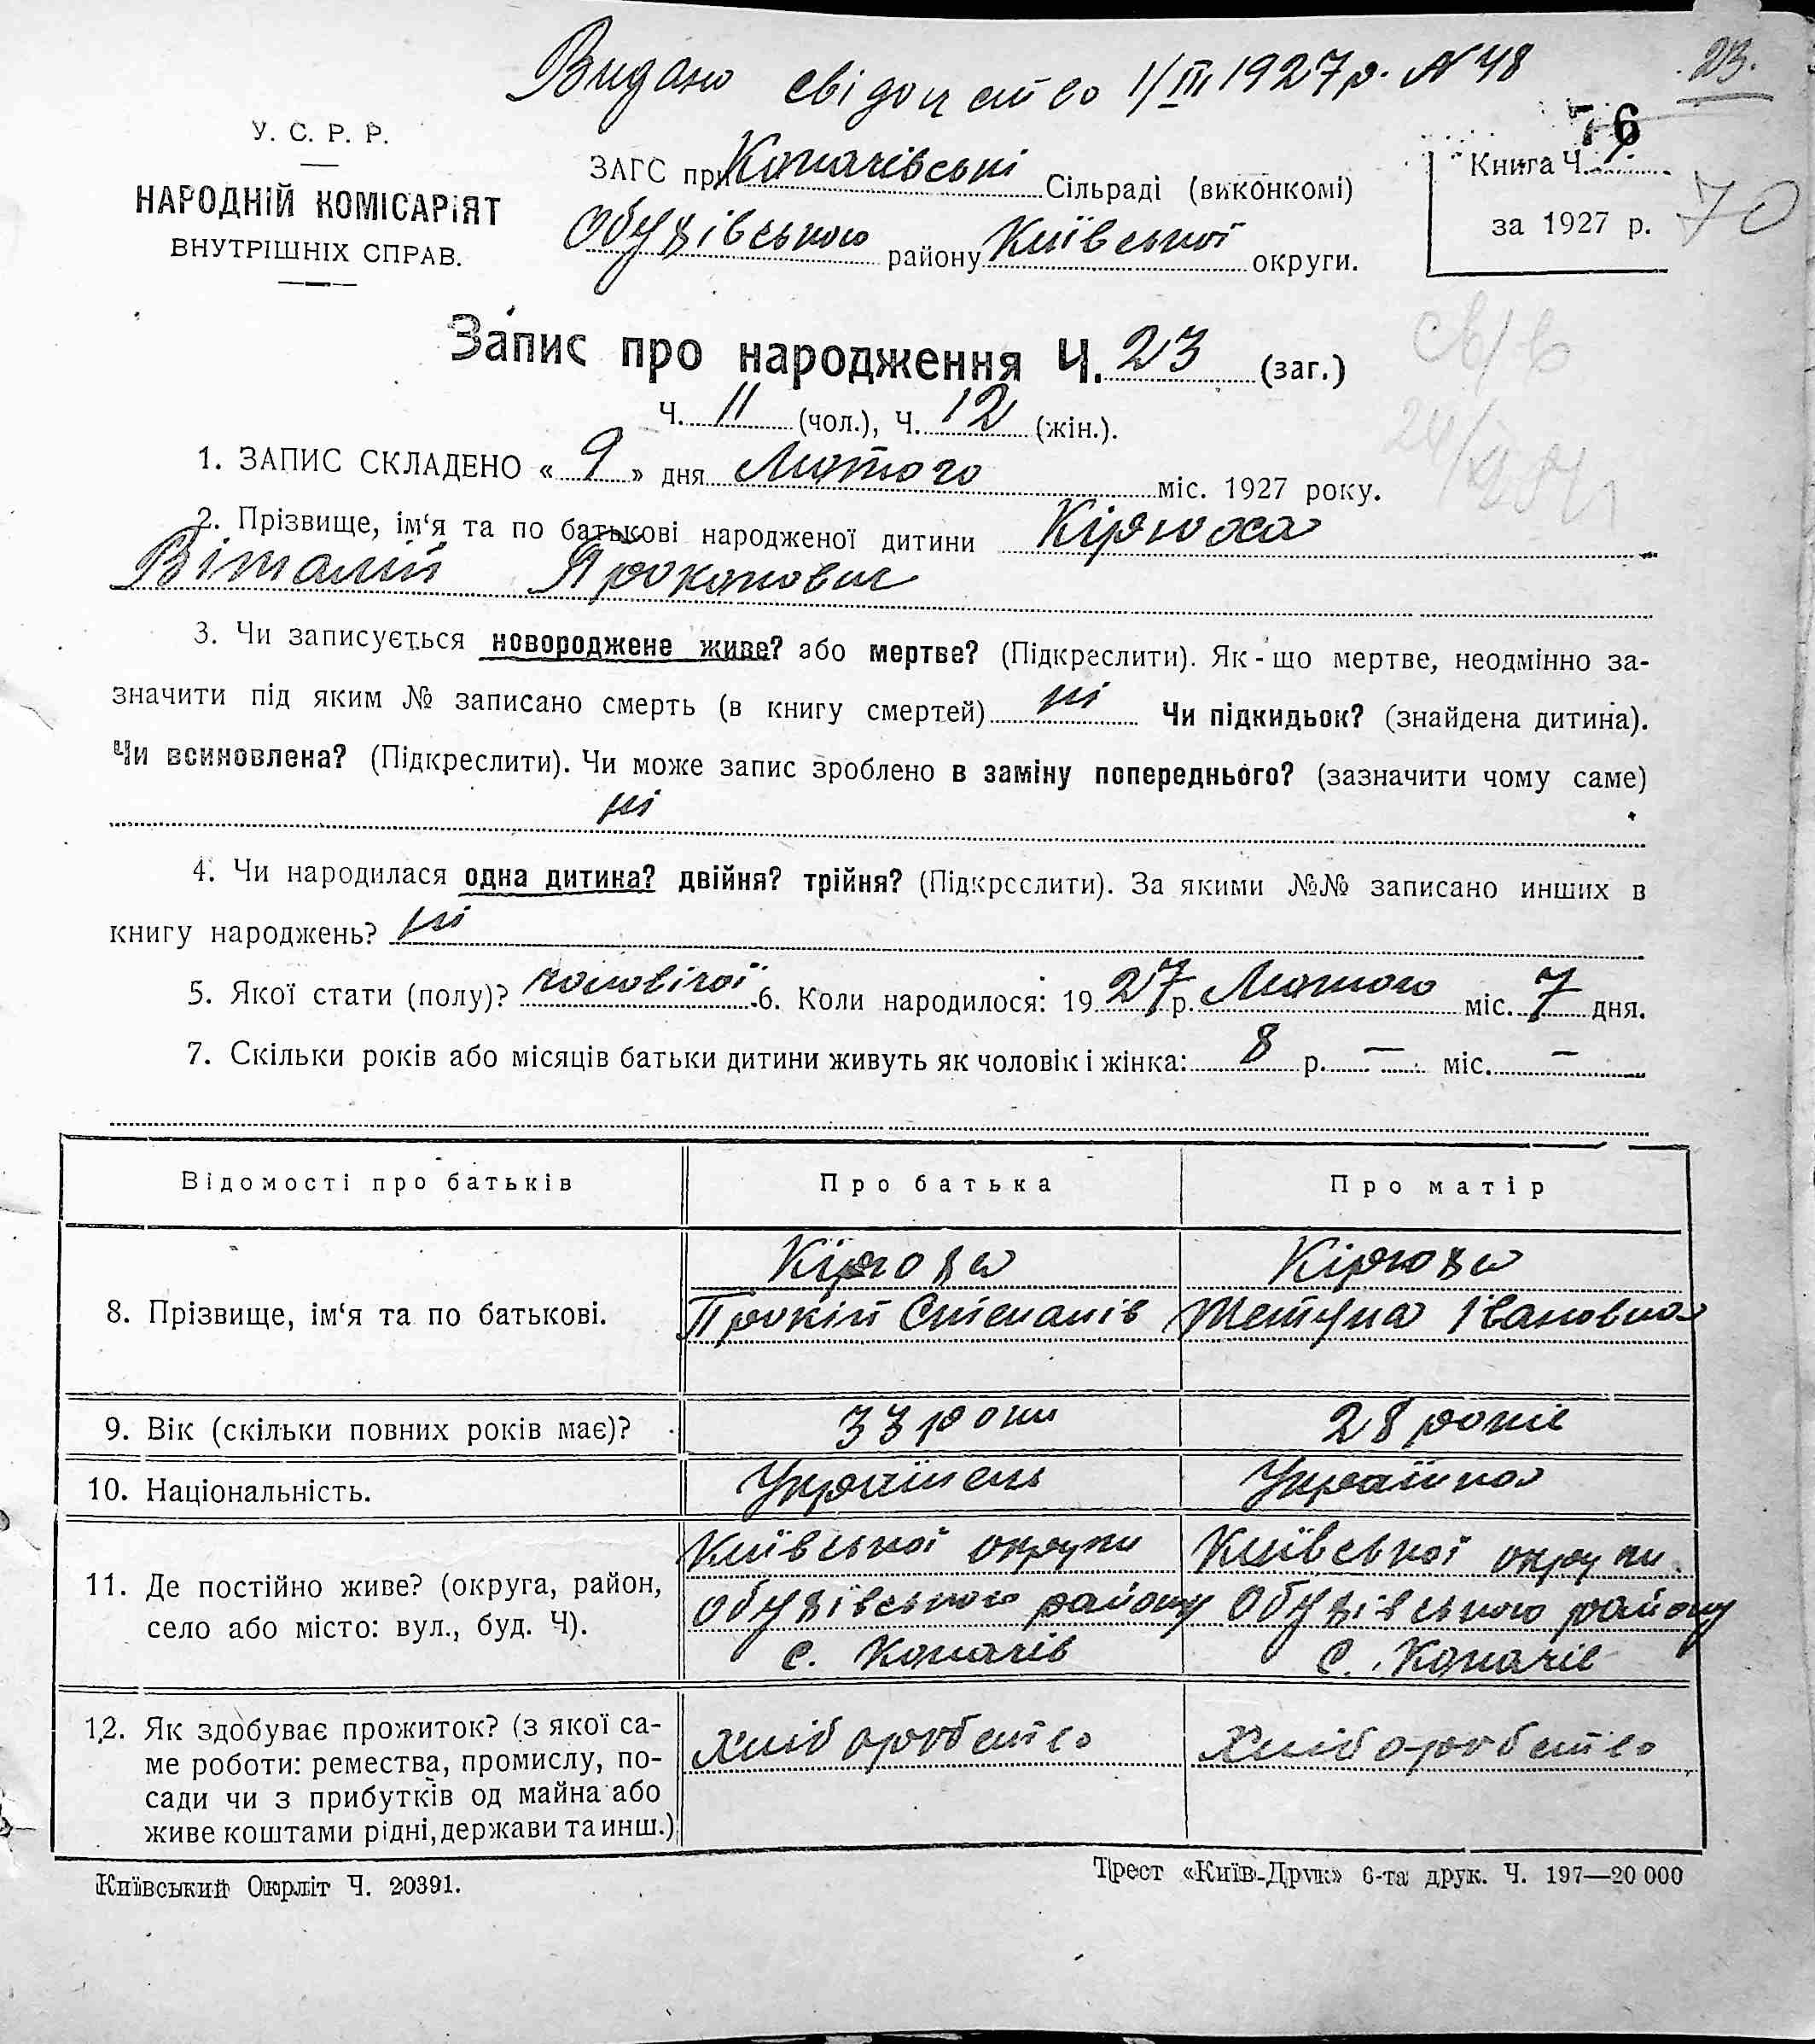 Видано свідоцтво 1/III 1927 р. N 48
23.
76
У. С. Р. Р.
НАРОДНІЙ КОМІСАРІЯТ
ВНУТРІШНІХ СПРАВ.
ЗАГС при Копачівські Сільраді (виконкомі)
Обухівського району Київської округи.
Книга Ч. 1.
за 1927 р.
70
Запис про народження Ч. 23 (заг.)
Ч. 11 (чол.), Ч. 12 (жін.).
1. ЗАПИС СКЛАДЕНО « 9 » дня Лютого міс. 1927 року.
2. Прізвище, ім‘я та по батькові народженої дитини Кірюха
Віталій Прокопович
3. Чи записується новороджене живе? або мертве? (Підкреслити). Як-що мертве, неодмінно за-
значити під яким № записано смерть (в книгу смертей) ні Чи підкидьок? (знайдена дитина).
Чи всиновлена? (Підкреслити). Чи може запис зроблено в заміну попереднього? (зазначити чому саме)
ні
4. Чи народилася одна дитина? двійня? трійня? (Підкреслити). За якими №№ записано инших в
книгу народжень? ні
5. Якої стати (полу)? чоловічої 6. Коли народилося: 1927 р. Лютого міс. 7 дня.
7. Скільки років або місяців батьки дитини живуть як чоловік і жінка: 8 р. — міс. —
Відомості про батьків Про батька Про матір
8. Прізвище, ім‘я та по батькові.
Кірюха Кірюха
Прокіп Степанів Тетяна Івановна
9. Вік (скільки повних років має)? 33 роки 28 років
10. Національність. Українець Українка
11. Де постійно живе? (округа, район,
село або місто: вул., буд. Ч).
Київської округи Київської округи
Обухівського району Обухівського району
с. Копачів с. Копачів
12. Як здобуває прожиток? (з якої са-
ме роботи: ремества, промислу, по-
сади чи з прибутків од майна або
живе коштами рідні, держави та инш.)
хліборобство хліборобство
Київський Окрліт Ч. 20391.
Трест «Київ-Друк» 6-та друк. Ч. 197—20 000